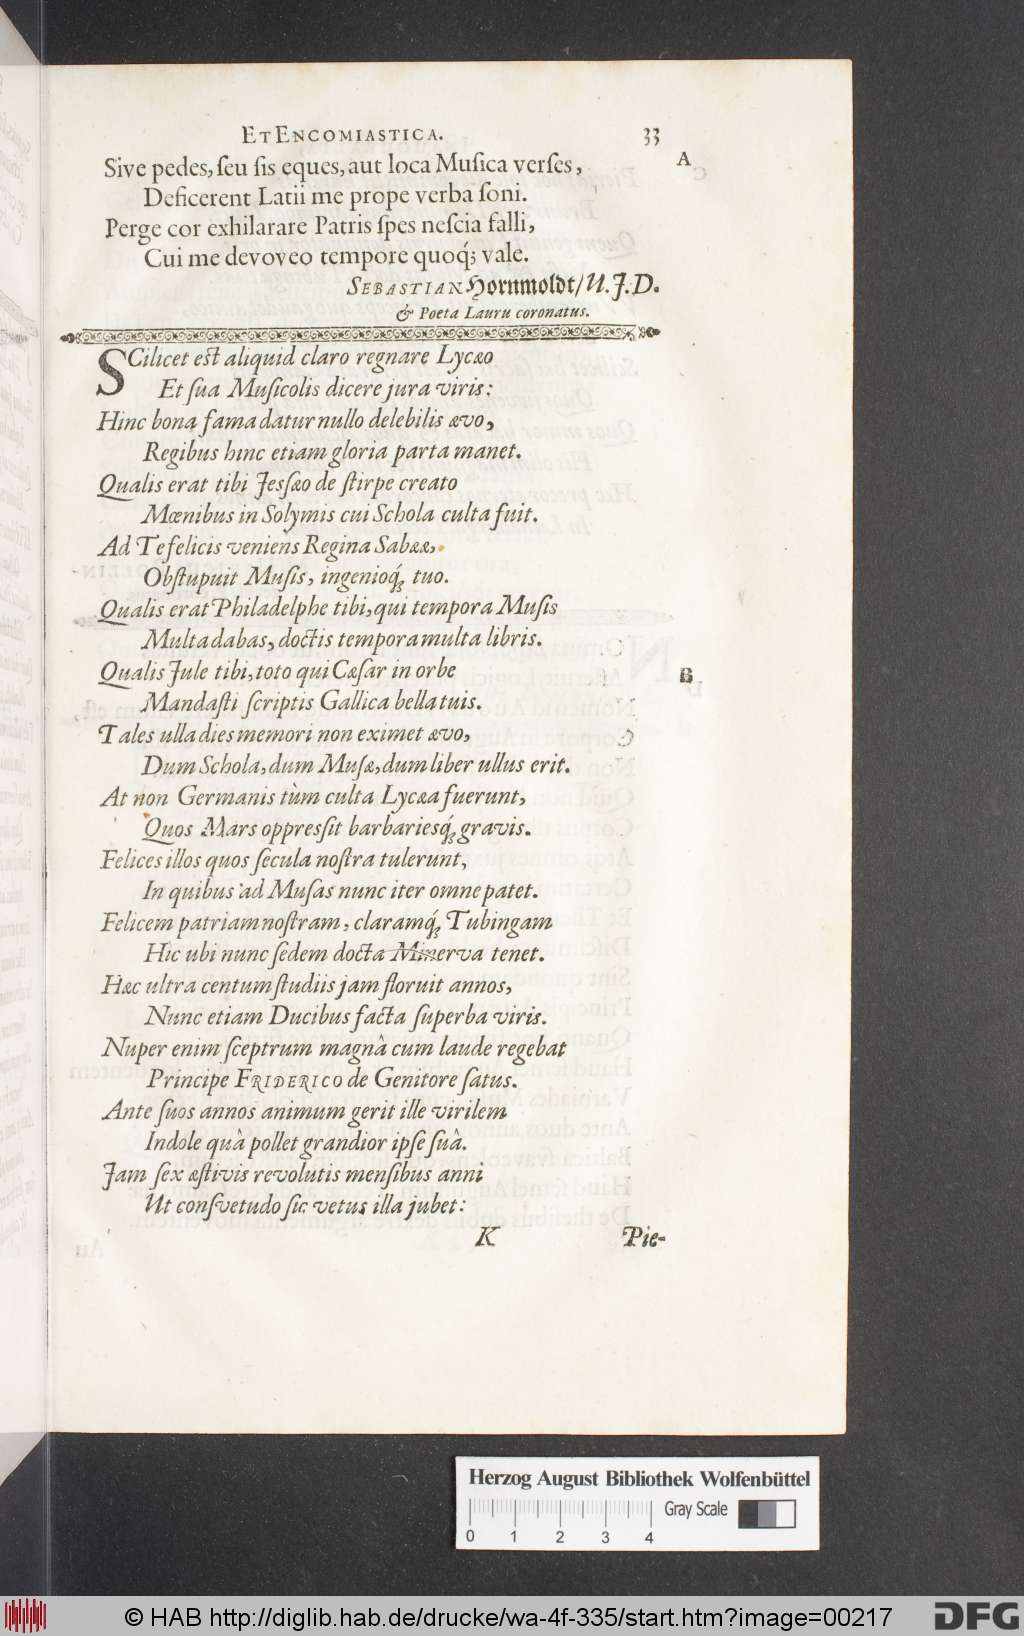 ET ENCOMIASTICA. 33
Sive pedes, ſeu ſis eques, aut loca Muſica verſes, A
Deficerent Latii me prope verba ſoni.
Perge cor exhilarare Patris ſpes neſcia falli,
Cui me devoveo tempore quoq́; vale.
SEBASTIAN Hornmoldt/ U. J. D.
& Poeta Lauru coronatus.
SCilicet eſt aliquid claro regnare Lycæo
Et ſua Muſicolis dicere jura viris:
Hinc bona fama datur nullo delebilis ævo,
Regibus hinc etiam gloria parta manet.
Qualis erat tibi Jeſſæo de ſtirpe creato
Mœnibus in Solymis cui Schola culta fuit.
Ad Te felicis veniens Regina Sabææ,
Obſtupuit Muſis, ingenioq́; tuo.
Qualis erat Philadelphe tibi, qui tempora Muſis
Multa dabas, doctis tempora multa libris.
Qualis Jule tibi, toto qui Cæſar in orbe B
Mandaſti ſcriptis Gallica bella tuis.
Tales ulla dies memori non eximet ævo,
Dum Schola, dum Muſæ, dum liber ullus erit.
At non Germanis tùm culta Lycæa fuerunt,
Quos Mars oppreſſit barbariesq́; gravis.
Felices illos quos ſecula noſtra tulerunt,
In quibus ad Muſas nunc iter omne patet.
Felicem patriam noſtram, claramq́; Tubingam
Hic ubi nunc ſedem docta Minerva tenet.
Hæc ultra centum ſtudiis jam floruit annos,
Nunc etiam Ducibus facta ſuperba viris.
Nuper enim ſceptrum magnâ cum laude regebat
Principe FRIDERICO de Genitore ſatus.
Ante ſuos annos animum gerit ille virilem
Indole quâ pollet grandior ipſe ſuâ.
Jam ſex æſtivis revolutis menſibus anni
Ut conſvetudo ſic vetus illa jubet:
K Pie-
Herzog August Bibliothek Wolfenbüttel
Gray Scale
0 1 2 3 4
© HAB http://diglib.hab.de/drucke/wa-4f-335/start.htm?image=00217 DFG